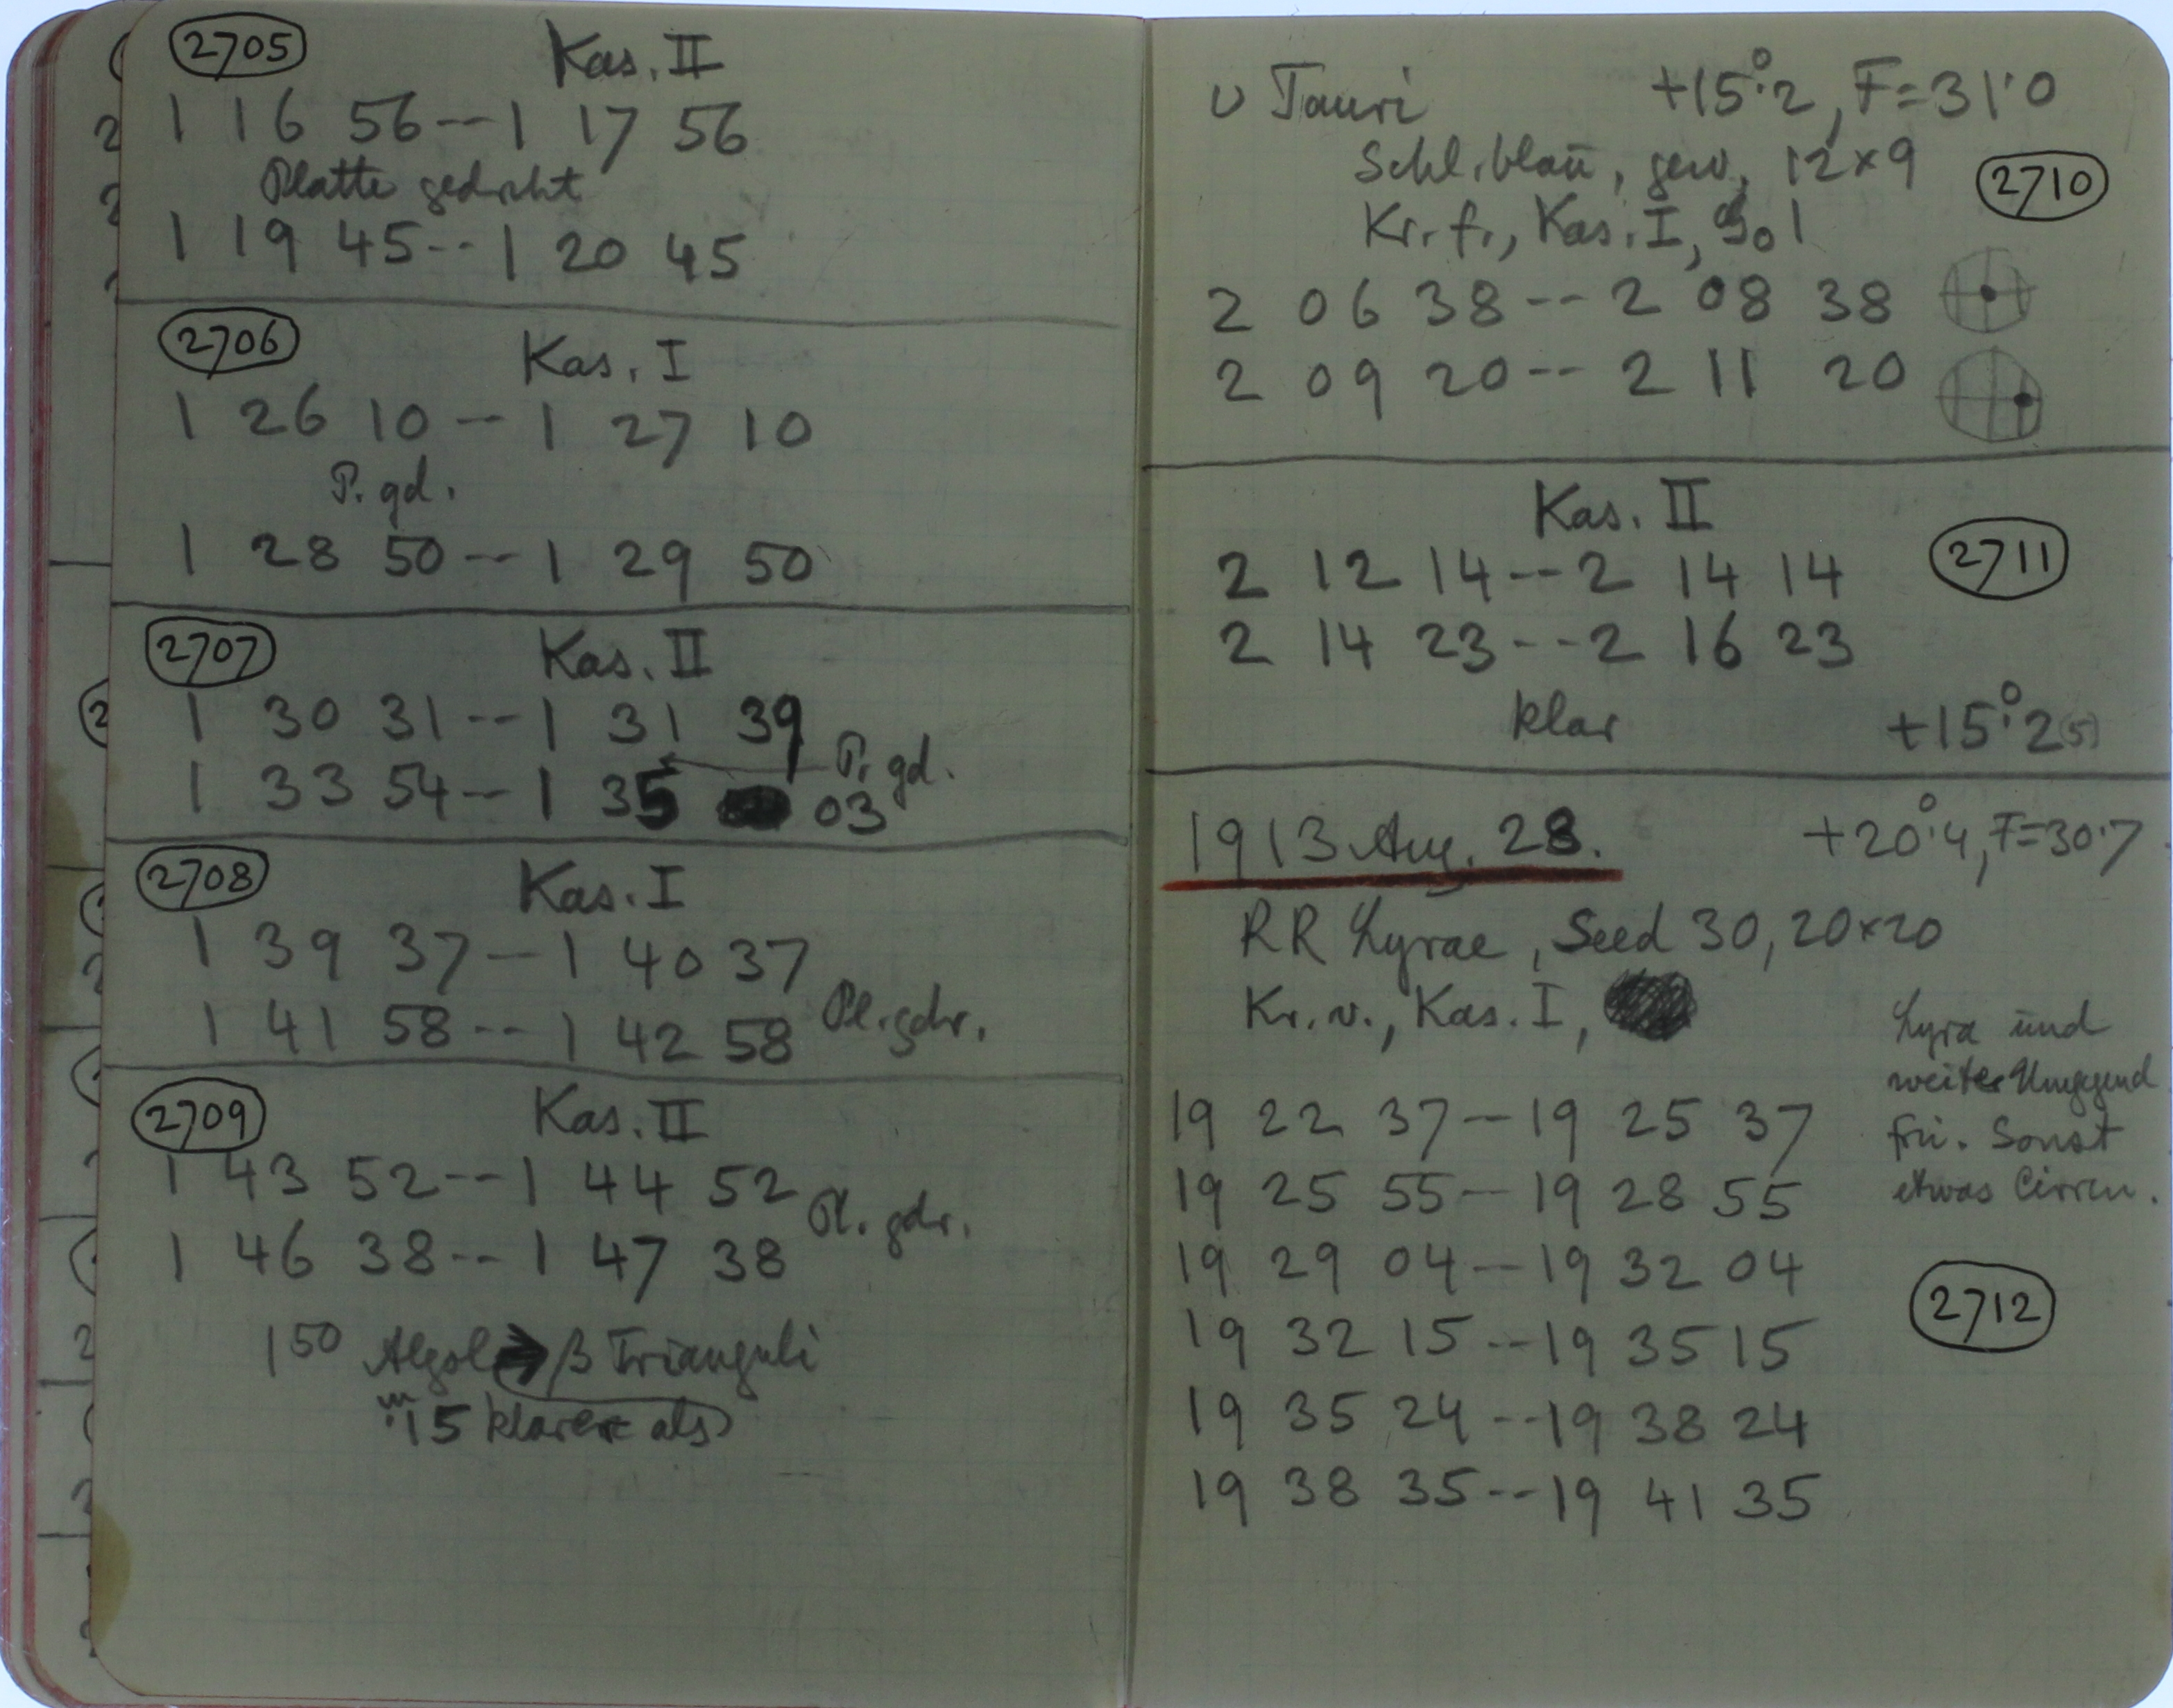 2705 Kas. II
1 16 56 -- 1 17 56
Platte gedreht
1 19 45 -- 1 20 45
2706 Kas. I
1 26 10 -- 1 27 10
P. gd.
1 28 50 -- 1 29 50
2707 Kas. II
1 30 31 -- 1 31 39
P. gd.
1 33 54 -- 1 35 03
2708 Kas. I
1 39 37 -- 1 40 37
Pl. gdr.
1 41 58 -- 1 42 58
2709 Kas. II
1 43 52 -- 1 44 52
Pl. gdr.
1 46 38 -- 1 47 38
1 50 Algol → β Trianguli
m .15 klarer als
υ Tauri +15°.2, F=31.0
Schl. blau, gew. 12×9
2710
Kr. f., Kas. I,
2 06 38 -- 2 08 38
2 09 20 -- 2 11 20
Kas. II
2711
2 12 14 -- 2 14 14
2 14 23 -- 2 16 23
klar +15°.2(5)
1913 Aug. 28. +20°.4, F=30.7
RR Lyrae, Seed 30, 20×20
Kr. v., Kas. I,
Lyra und
weiter Umgegend
frei. Sonst
etwas Cirren.
19 22 37 -- 19 25 37
19 25 55 -- 19 28 55
19 29 04 -- 19 32 04
2712
19 32 15 -- 19 35 15
19 35 24 -- 19 38 24
19 38 35 -- 19 41 35